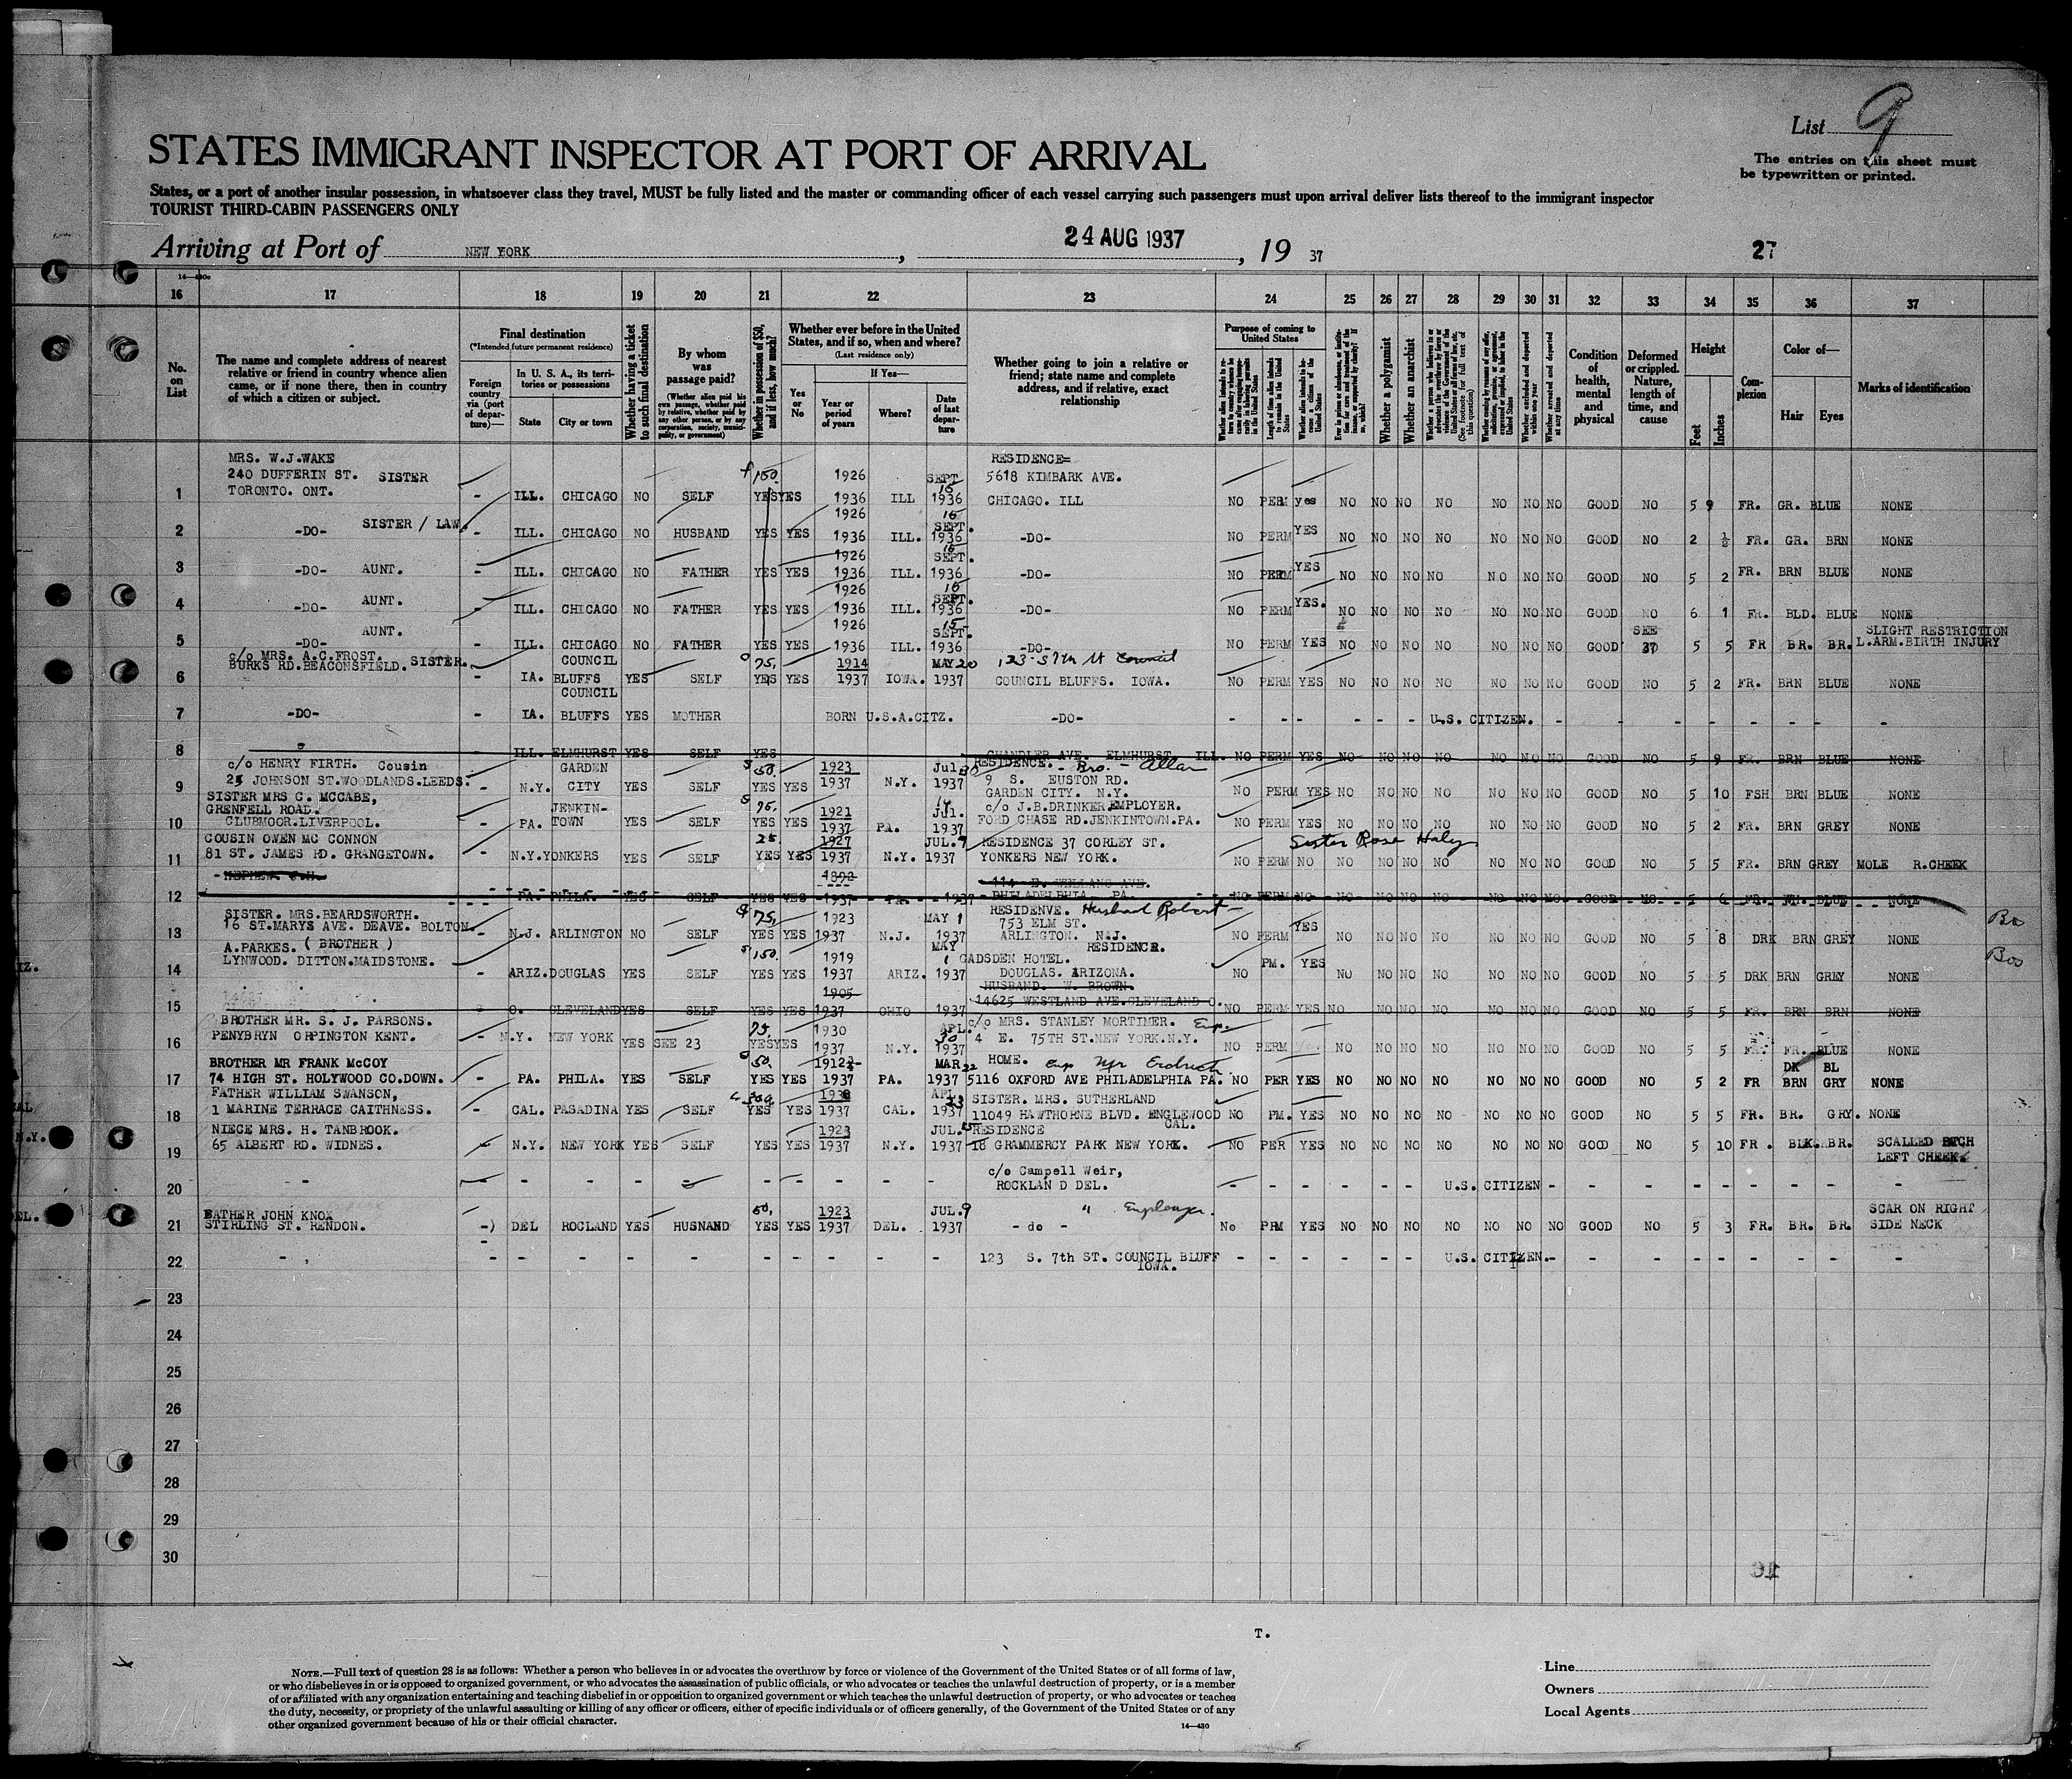 List 9
The entries on this sheet must
be typewritten or printed.
STATES IMMIGRANT INSPECTOR AT PORT OF ARRIVAL
States, or a port of another insular possession, in whatsoever class they travel, MUST be fully listed and the master or commanding officer of each vessel carrying such passengers must upon arrival deliver lists thereof to the immigrant inspector
TOURIST THIRD-CABIN PASSENGERS ONLY
Arriving at Port of NEW YORK, 24 AUG 1937, 19 37
27
16 17 18 19 20 21 22 23 24 25 26 27 28 29 30 31 32 33 34 35 36 37
No. on List
The name and complete address of nearest
relative or friend in country whence alien
came, or if none there, then in country
of which a citizen or subject.
Final destination
(*Intended future permanent residence)
Foreign country via (port of departure)—
In U. S. A., its territories or possessions
State
City or town
Whether having a ticket to such final destination
By whom was passage paid?
(Whether alien paid his own passage, whether paid by relative, whether paid by any other person, or by any corporation, society, municipality, or government)
Whether in possession of $50, and if less, how much?
Whether ever before in the United
States, and if so, when and where?
(Last residence only)
Yes or No
If Yes—
Year or period of years
Where?
Date of last departure
Whether going to join a relative or
friend; state name and complete
address, and if relative, exact
relationship
Purpose of coming to United States
Length of time alien intends to remain in the United States
Whether alien intends to become a citizen of the United States
Whether a polygamist
Whether an anarchist
Whether excluded and deported within one year
Whether arrested and deported at any time
Condition of health, mental and physical
Deformed or crippled. Nature, length of time, and cause
Height
Feet
Inches
Complexion
Color of—
Hair
Eyes
Marks of identification
MRS. W.J.WAKE
240 DUFFERIN ST. SISTER 150. 1926 SEPT 15 RESIDENCE= 5618 KIMBARK AVE.
1 TORONTO. ONT. - ILL. CHICAGO NO SELF YES YES 1936 ILL 1936 CHICAGO. ILL NO PERM yes NO NO NO NO NO NO NO GOOD NO 5 9 FR. GR. BLUE NONE
SISTER / LAW. 1926 15 SEPT.
2 -DO- - ILL. CHICAGO NO HUSBAND YES YES 1936 ILL. 1936 -DO- NO PERM YES NO NO NO NO NO NO NO GOOD NO 2 ½ FR. GR. BRN NONE
1926 15 SEPT.
3 -DO- AUNT. - ILL. CHICAGO NO FATHER YES YES 1936 ILL. 1936 -DO- NO PERM YES NO NO NO NO NO NO NO GOOD NO 5 2 FR. BRN BLUE NONE
1926 15 SEPT.
4 -DO- AUNT. - ILL. CHICAGO NO FATHER YES YES 1936 ILL. 1936 -DO- NO PERM YES. NO NO NO NO NO NO NO GOOD NO 6 1 FR. BLD. BLUE NONE
AUNT. 1926 15 SEPT. SEE SLIGHT RESTRICTION
5 -DO- - ILL. CHICAGO NO FATHER YES YES 1936 ILL. 1936 -DO- NO PERM YES NO NO NO NO NO NO NO GOOD 37 5 5 FR BR. BR. L.ARM.BIRTH INJURY
c/o MRS. A.C.FROST.
BURKS RD.BEACONSFIELD. SISTER. COUNCIL 75. 1914 MAY 20 123 S 7th St Council
6 - IA. BLUFFS YES SELF YES YES 1937 IOWA. 1937 COUNCIL BLUFFS. IOWA. NO PERM YES NO NO NO NO NO NO NO GOOD NO 5 2 FR. BRN BLUE NONE
COUNCIL
7 -DO- - IA. BLUFFS YES MOTHER BORN U.S.A.CITZ. -DO- - - - - - - U.S. CITIZEN. - - - - - - - -
8 - ILL. ELMHURST YES SELF YES CHANDLER AVE. ELMHURST. ILL. NO PERM YES NO NO NO NO NO NO NO GOOD NO 5 9 FR. BRN BLUE NONE
c/o HENRY FIRTH. Cousin GARDEN 50. 1923 Jul. 30 RESIDENCE. - Bro. - Allan
25 JOHNSON ST.WOODLANDS.LEEDS. 9 S. EUSTON RD.
9 - N.Y. CITY YES SELF YES YES 1937 N.Y. 1937 GARDEN CITY. N.Y. NO PERM YES NO NO NO NO NO NO NO GOOD NO 5 10 FSH BRN BLUE NONE
SISTER MRS C. MCCABE,
GRENFELL ROAD. JENKIN- 75. 1921 14 Jul. c/o J.B.DRINKER EMPLOYER.
10 CLUBMOOR.LIVERPOOL. - PA. TOWN YES SELF YES YES 1937 PA. 1937 FORD CHASE RD.JENKINTOWN.PA. NO PERM YES NO NO NO NO NO NO NO GOOD NO 5 2 FR. BRN GREY NONE
COUSIN OWEN MC CONNON 25. 1927 JUL. 9 RESIDENCE 37 CORLEY ST. Sister Rose Haly
11 81 ST. JAMES RD. GRANGETOWN. - N.Y.YONKERS YES SELF YES YES 1937 N.Y. 1937 YONKERS NEW YORK. NO PERM NO NO NO NO NO NO NO NO GOOD NO 5 5 FR. BRN GREY MOLE R.CHEEK
1892
12 PA. PHILA. YES SELF YES YES 1937 1937 PHILADELPHIA PA. NO PERM NO NO NO NO NO NO NO NO GOOD NO 5 6 FR. BLUE NONE
SISTER. MRS.BEARDSWORTH. $ 75. 1923 MAY 1 RESIDENVE. Husband Robert
16 ST.MARYS AVE. DEAVE. BOLTON. 753 ELM ST.
13 - N.J. ARLINGTON NO SELF YES YES 1937 N.J. 1937 ARLINGTON. N.J. NO PERM YES NO NO NO NO NO NO NO GOOD NO 5 8 DRK BRN GREY NONE
A.PARKES. ( BROTHER ) 150. 1919 MAY 1 RESIDENCE.
LYNWOOD. DITTON.MAIDSTONE. GADSDEN HOTEL.
14 - ARIZ.DOUGLAS YES SELF YES YES 1937 ARIZ. 1937 DOUGLAS. ARIZONA. NO PM. YES NO NO NO NO NO NO NO GOOD NO 5 5 DRK BRN GREY NONE
1905 HUSBAND. W. BROWN.
15 O. CLEVELAND YES SELF YES YES 1937 OHIO 1937 14625 WESTLAND AVE.CLEVELAND O. NO PERM YES NO NO NO NO NO NO NO GOOD NO 5 5 FR. BRN BRN NONE
BROTHER MR. S. J. PARSONS. 75. 1930 APL. 30 c/o MRS. STANLEY MORTIMER. Emp.
16 PENYBRYN ORPINGTON KENT. - N.Y. NEW YORK YES SEE 23 YES YES 1937 N.Y. 1937 4 E. 75TH ST.NEW YORK.N.Y. NO PERM NO NO NO NO NO NO NO GOOD NO 5 5 FR. FR. BLUE NONE
BROTHER MR FRANK McCOY 50. MAR 22 HOME. DK BL
17 74 HIGH ST. HOLYWOOD CO.DOWN. - PA. PHILA. YES SELF YES YES 1937 PA. 1937 5116 OXFORD AVE PHILADELPHIA PA. NO PER YES NO NO NO NO NO NO NO GOOD NO 5 2 FR BRN GRY NONE
FATHER WILLIAM SWANSON, APL. 23 SISTER. MRS. SUTHERLAND
18 1 MARINE TERRACE CAITHNESS. - CAL. PASADINA YES SELF YES YES 1937 CAL. 1937 11049 HAWTHORNE BLVD. ENGLEWOOD CAL. NO PM. YES NO NO NO NO NO NO NO GOOD NO 5 5 FR. BR. GRY. NONE
NIECE MRS. H. TANBROOK. 1923 JUL. RESIDENCE
19 65 ALBERT RD. WIDNES. - N.Y. NEW YORK YES SELF YES YES 1937 N.Y. 1937 18 GRAMMERCY PARK NEW YORK. NO PER YES NO NO NO NO NO NO NO GOOD NO 5 10 FR. BLK. BR. SCALLED
LEFT CHEEK.
c/o Campell Weir,
20 - - - - - - - - - - - ROCKLAN D DEL. - - - - - - U.S. CITIZEN - - - - - - - -
FATHER JOHN KNOX 50. 1923 JUL. 9 " Employer. SCAR ON RIGHT
21 STIRLING ST. RENDON. - DEL ROCLAND YES HUSNAND YES YES 1937 DEL. 1937 - do - No PRM YES NO NO NO NO NO NO NO GOOD NO 5 3 FR. BR. BR. SIDE NECK
22 - - - - - - - - - - - 123 S. 7th ST. COUNCIL BLUFF - - - - - - U.S. CITIZEN. - - - - - - - -
IOWA.
23
24
25
26
27
28
29
30
T.
NOTE.—Full text of question 28 is as follows: Whether a person who believes in or advocates the overthrow by force or violence of the Government of the United States or of all forms of law,
or who disbelieves in or is opposed to organized government, or who advocates the assassination of public officials, or who advocates or teaches the unlawful destruction of property, or is a member
of or affiliated with any organization entertaining and teaching disbelief in or opposition to organized government or which teaches the unlawful destruction of property, or who advocates or teaches
the duty, necessity, or propriety of the unlawful assaulting or killing of any officer or officers, either of specific individuals or of officers generally, of the Government of the United States or of any
other organized government because of his or their official character.
14—430
Line
Owners
Local Agents